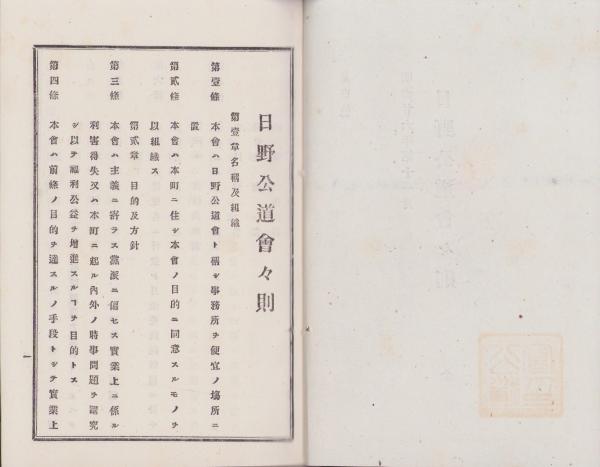 日野公道會々則
第壹章名稱及組織
第壹條 本會ハ日野公道會ト稱シ事務所ヲ便宜ノ塲所ニ
置ク
第貳條 本會ハ本町ニ住シ本會ノ目的ニ同意スルモノヲ
以組織ス
第貳章 目的及方針
第三條 本會ハ主義ニ寄ラス黨派ニ偏セス實業上ニ係ル
利害得失又ハ本町ニ起ル內外ノ時事問題ヲ硏究
シ以テ福利公益ヲ增進スルヿヲ目的トス
第四條 本會ハ前條ノ目的ヲ達スルノ手段トシテ實業上
一